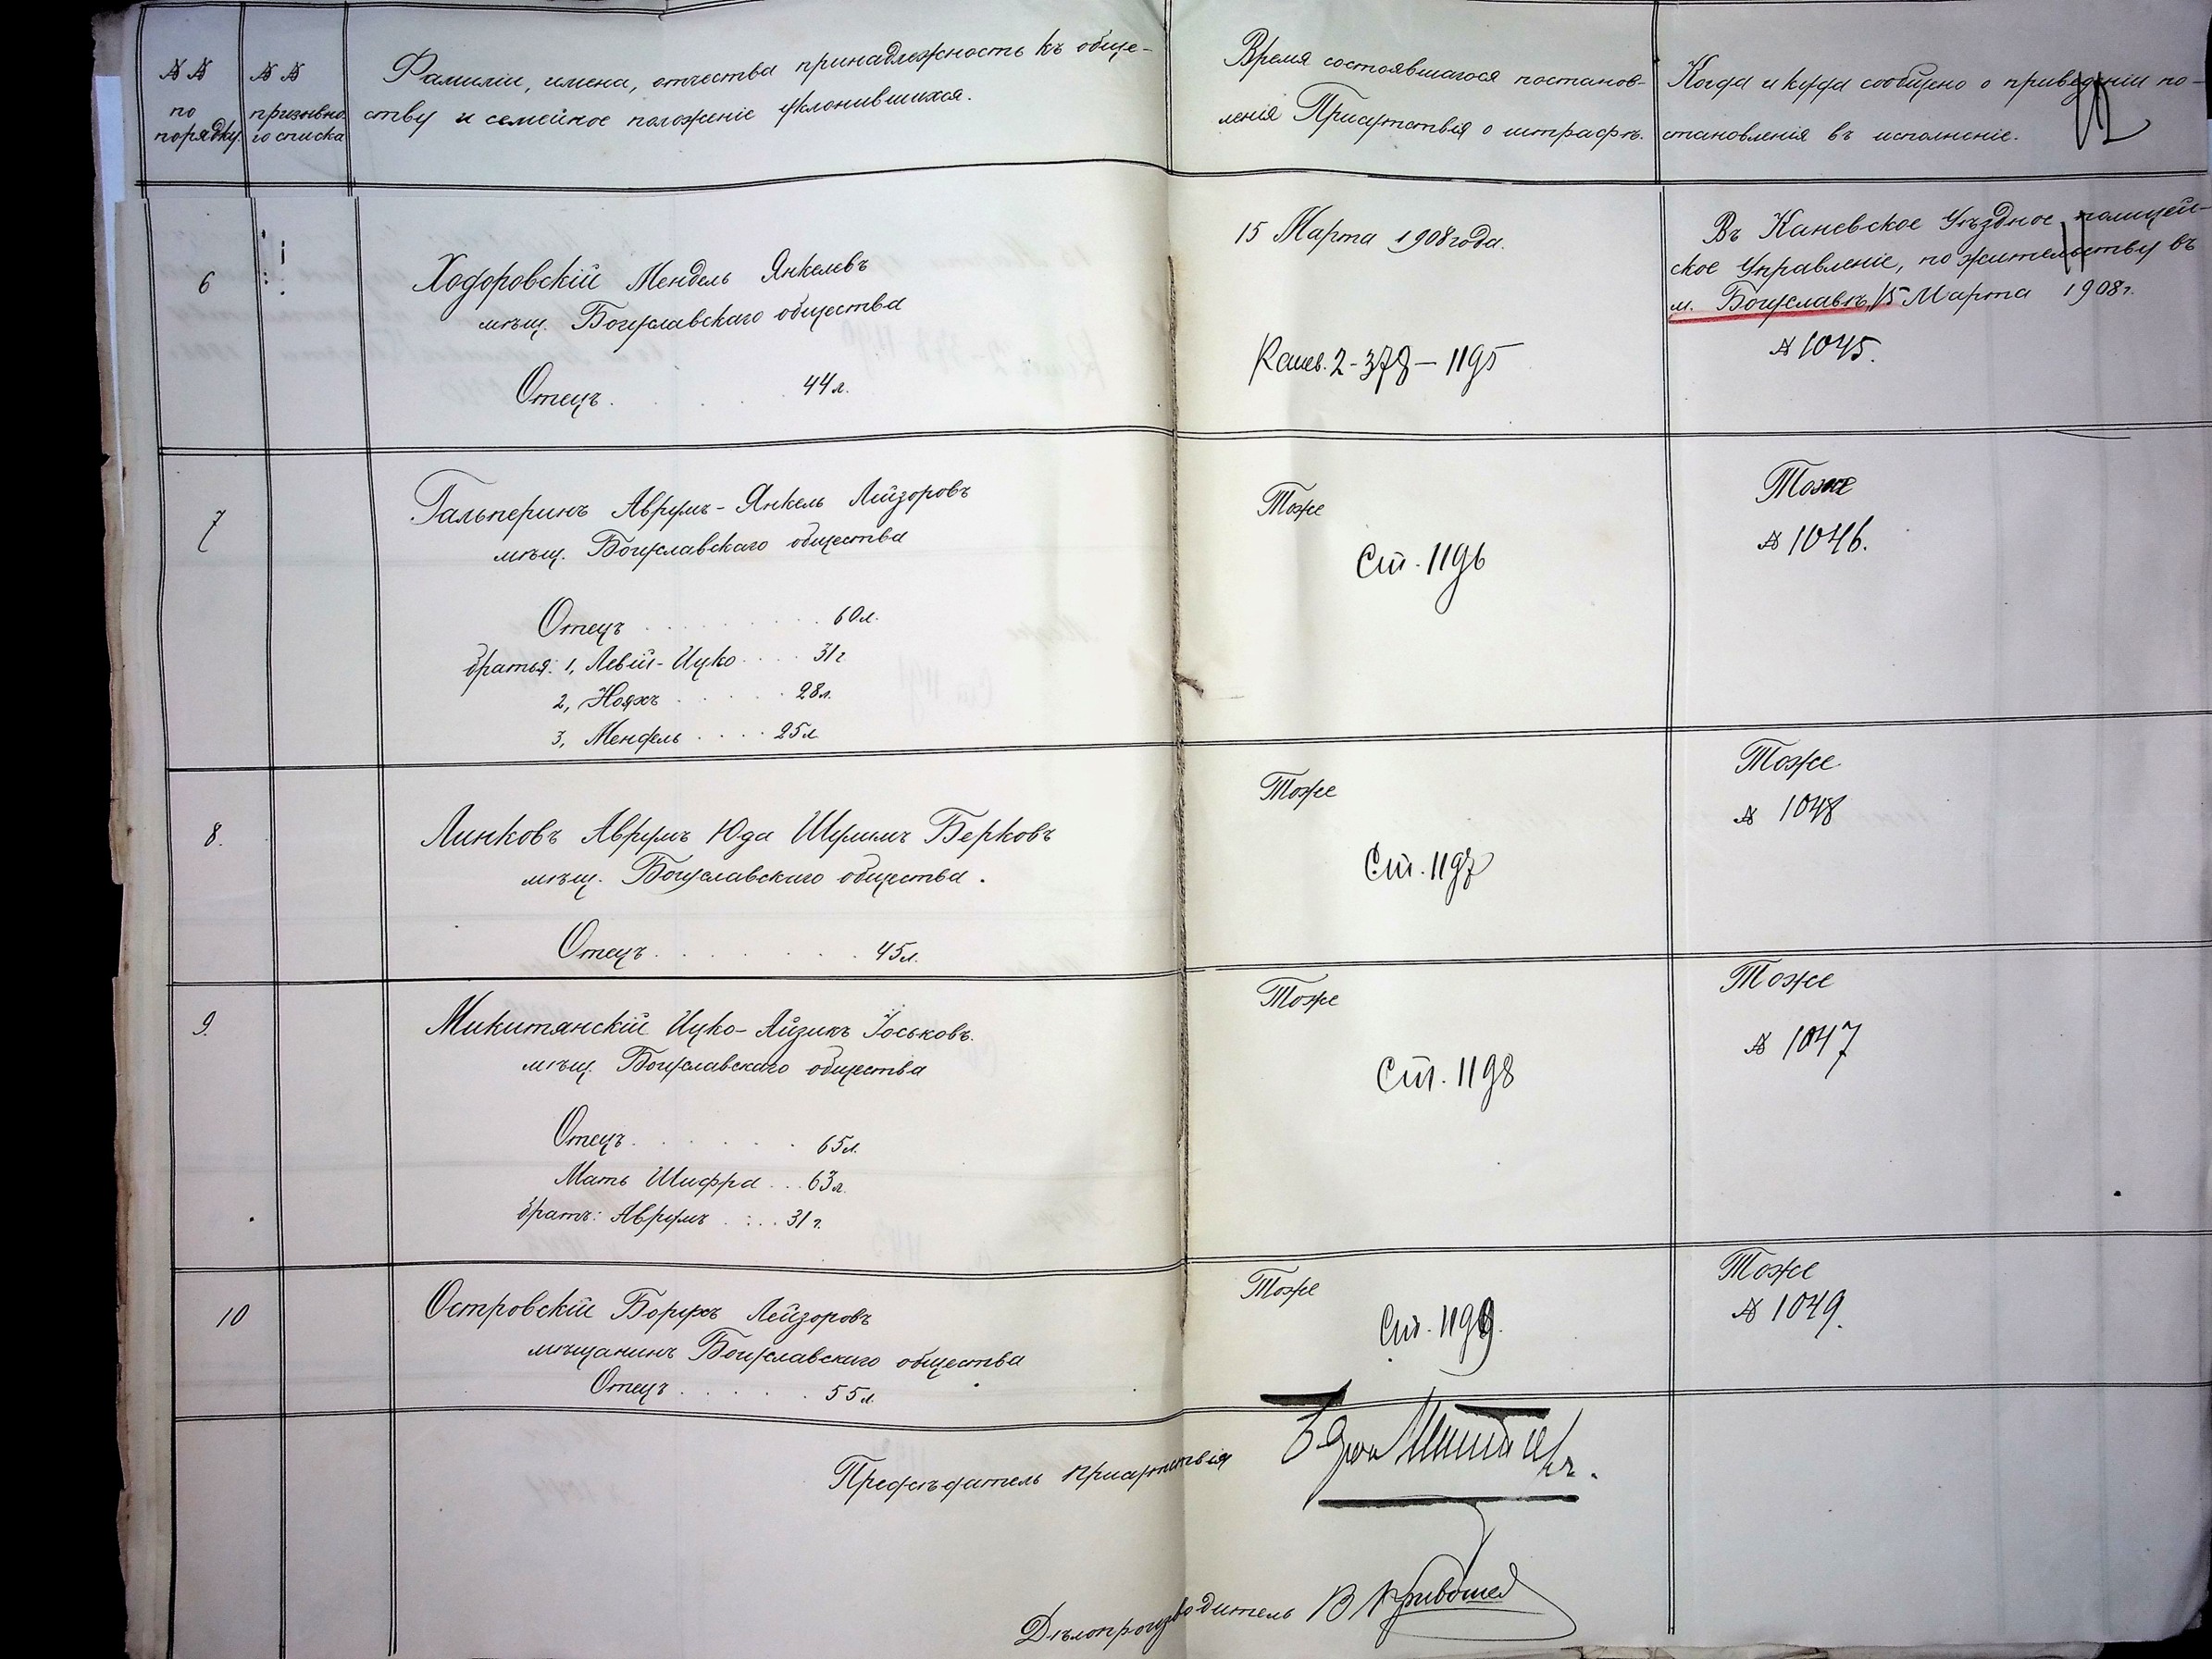 №№ по порядку.
№№ призывно-го списка
Фамиліи, имена, отчества принадлежность къ обще-
ству и семейное положеніе уклонившихся.
Время состоявшагося постанов-
ленія Присутствія о штрафѣ.
Когда и куда сообщено о приведеніи по-
становленія въ исполненіе.
6
Ходоровскій Мендель Янкелевъ
мѣщ. Богуславскаго общества
Отецъ . . . . 44 л.
15 Марта 1908 года.
Канев. 2-378-1195
Въ Каневское Уѣздное полицей-
ское Управленіе, по жительству въ
м. Богуславѣ, 15 Марта 1908 г.
№ 1045.
7
Гальперинъ Аврумъ-Янкель Лейзоровъ
мѣщ. Богуславскаго общества
Отецъ . . . . . . . . . 60 л.
братья: 1, Левій-Ицко . . . . 31 г
2, Нояхъ . . . . . . 28 л.
3, Мендель . . . . 25 л
Тоже
Ст. 1196
Тоже
№ 1046.
8.
Линковъ Аврумъ Юда Шулимъ Берковъ
мѣщ. Богуславскаго общества.
Отецъ . . . . . . . . 45 л.
Тоже
Ст. 1197
Тоже
№ 1048
9.
Микитянскій Ицко-Айзикъ Іоськовъ.
мѣщ. Богуславскаго общества
Отецъ . . . . . . . 65 л.
Мать Шифра . . . 63 л.
братъ: Аврумъ . . . . 31 г.
Тоже
Ст. 1198
Тоже
№ 1047
10
Островскій Борухъ Лейзоровъ
мѣщанинъ Богуславскаго общества
Отецъ . . . . . . 55 л
Тоже
Ст. 1199.
Тоже
№ 1049.
Предсѣдатель Присутствія
Дѣлопроизводитель В Кривошея